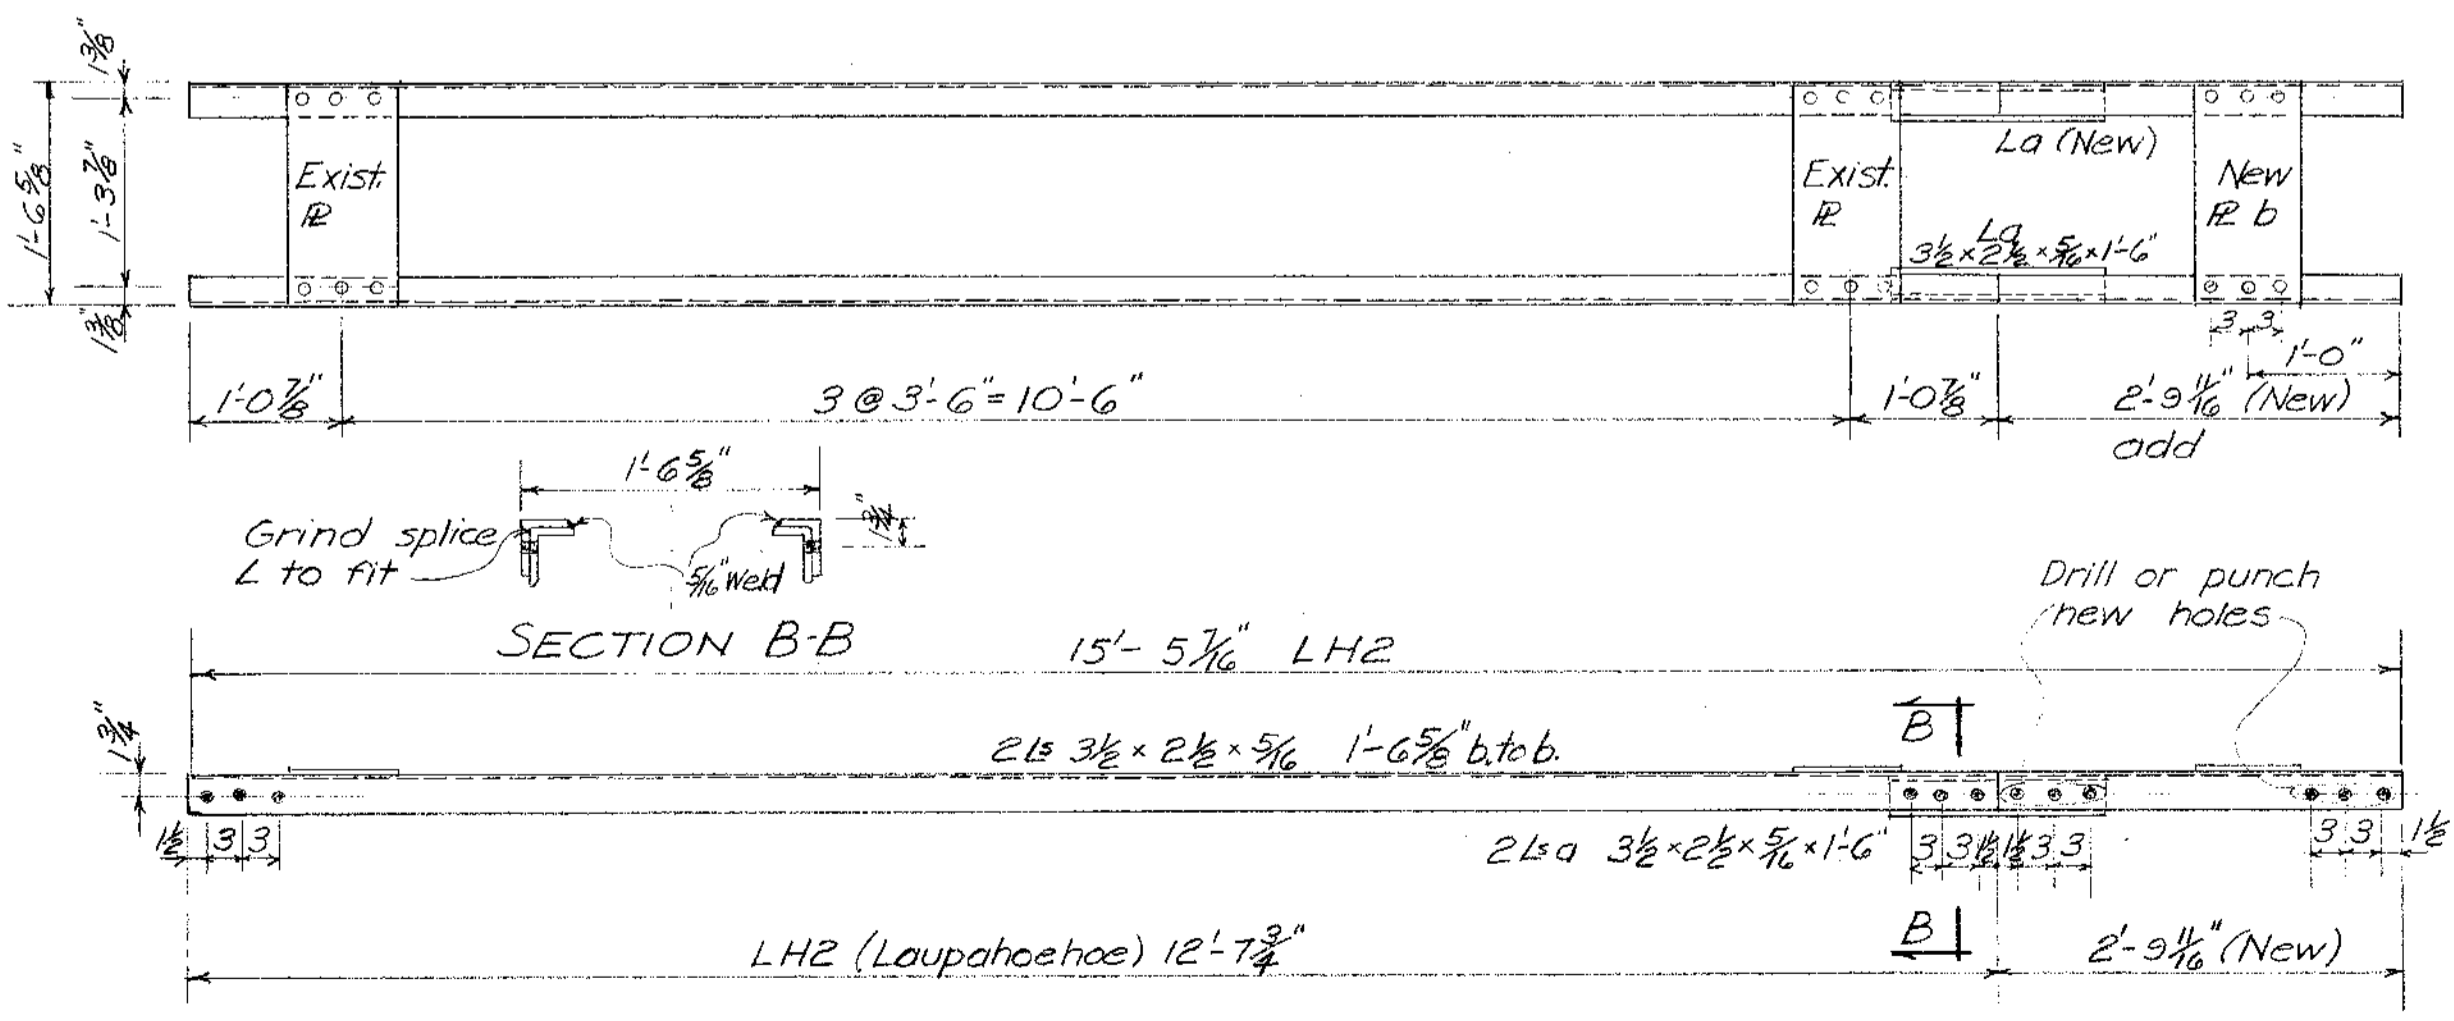 1 3/8"
1'-6 5/8"
1'-3 7/8"
1 3/8"
Exist.
PL
Exist.
PL
La (New)
La
3½ × 2½ × 5/16 × 1'-6"
New
PL b
3 3
1'-0"
1'-0 7/8"
3 @ 3'-6" = 10'-6"
1'-0 7/8"
2'-9 11/16" (New)
add
1'-6 5/8"
1 3/4"
Grind splice
L to fit
5/16" Weld
SECTION B-B
Drill or punch
new holes
15'-5 7/16" LH2
1 3/4"
2 Ls 3½ × 2½ × 5/16 1'-6 5/8" b. to b.
B
1½ 3 3
2 Ls a 3½ × 2½ × 5/16 × 1'-6"
3 3 1½ 1½ 3 3
3 3 1½
B
LH2 (Laupahoehoe) 12'-7 3/4"
2'-9 11/16" (New)